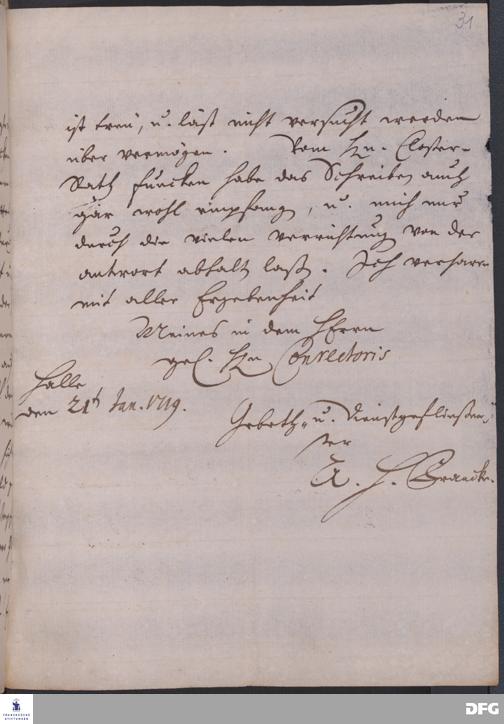 31
ist treu, u. läst nicht versucht werden
über vermögen. Vom Hn. Closter-
Rath Funcken habe das Schreiben auch
gar wohl empfang, u. mich nur
durch die vielen verrichtung von der
antwort abhalt laß. Ich verharre
mit aller Ergebenheit
Meines in dem HErrn
gel. Hn Conrectoris
Halle
den 21t Jan. 1719.
Gebeth- u. dienstgefließen
ster
A. H. Francke.
FRANCKESCHE
STIFTUNGEN
DFG